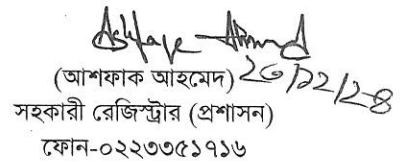 Ashfaque Ahmed
(আশফাক আহমেদ)
সহকারী রেজিস্ট্রার (প্রশাসন)
ফোন-০২২৩৩৩৫১৭১৬